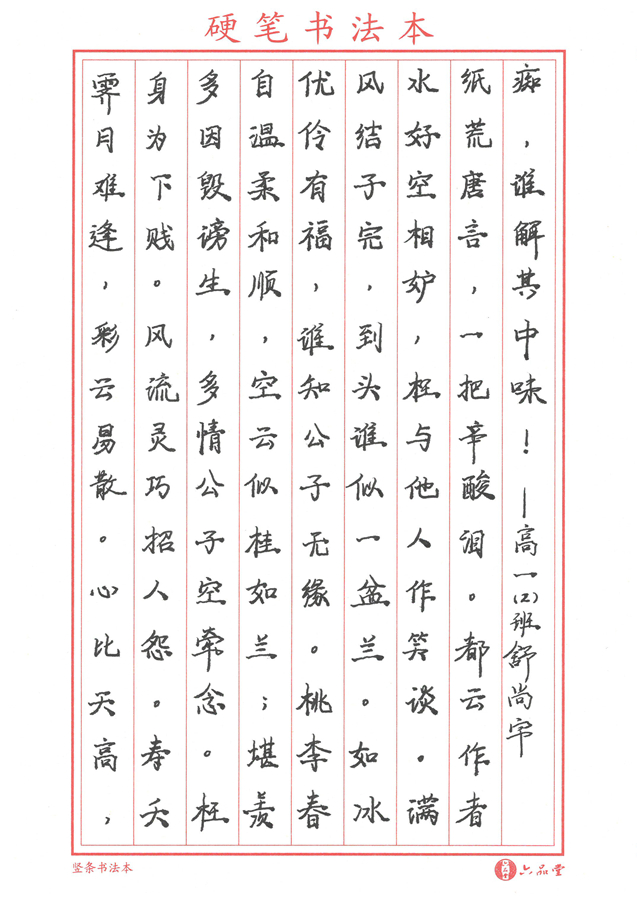 硬笔书法本
霁月难逢，彩云易散。心比天高，
身为下贱。风流灵巧招人怨。寿夭
多因毁谤生，多情公子空牵念。枉
自温柔和顺，空云似桂如兰；堪羡
优伶有福，谁知公子无缘。桃李春
风结子完，到头谁似一盆兰。如冰
水好空相妒，枉与他人作笑谈。满
纸荒唐言，一把辛酸泪。都云作者
痴，谁解其中味！—高一(2)班舒尚宇
竖条书法本
六品堂